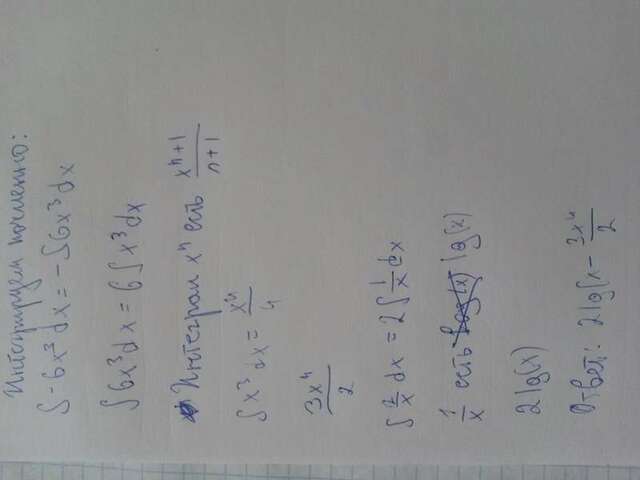 Интегрируем почленно:
∫-6x³dx = -∫6x³dx
∫6x³dx = 6∫x³dx
Интеграл xⁿ есть (xⁿ+1)/(n+1)
∫x³dx = x⁴/4
3x⁴/2
∫2/x dx = 2∫1/x dx
1/x есть lg(x)
2lg(x)
Ответ: 2lg(x - 3x⁴/2